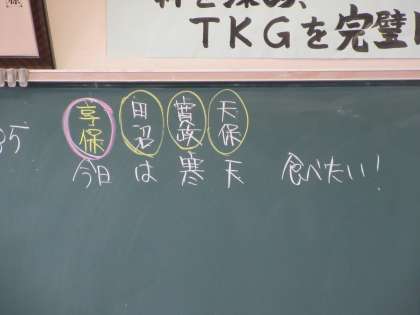 TKGを完璧
享保 田沼 寛政 天保
今日は寒天 食べたい!